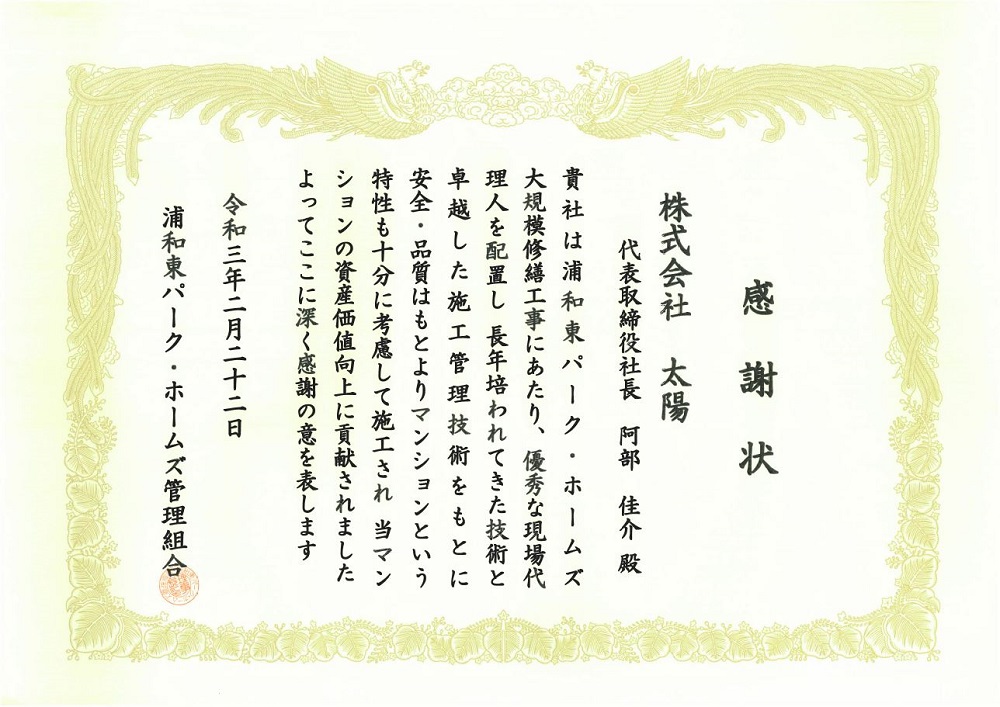 感謝状
株式会社　太陽
代表取締役社長　阿部　佳介　殿
貴社は浦和東パーク・ホームズ
大規模修繕工事にあたり、優秀な現場代
理人を配置し 長年培われてきた技術と
卓越した施工管理技術をもとに
安全・品質はもとよりマンションという
特性も十分に考慮して施工され 当マン
ションの資産価値向上に貢献されました
よってここに深く感謝の意を表します
令和三年二月二十二日
浦和東パーク・ホームズ管理組合